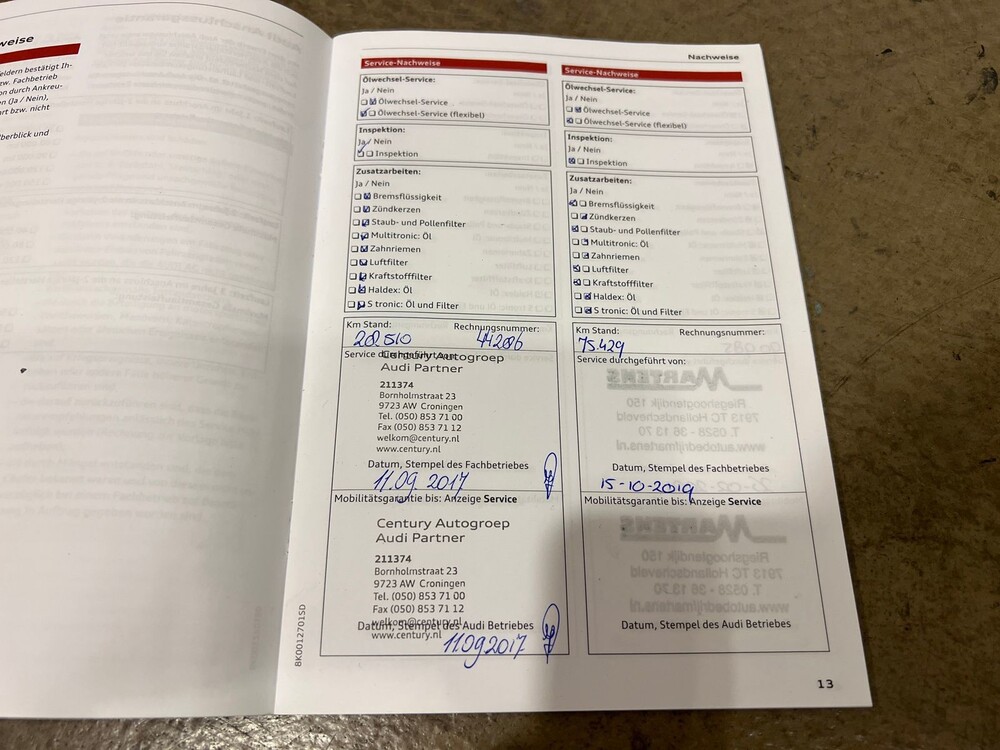 weise
eldern bestätigt Ih-
zw. Fachbetrieb
on durch Ankreu-
en (Ja / Nein),
rt bzw. nicht
berblick und
Nachweise
Service-Nachweise
Ölwechsel-Service:
Ja / Nein
Ölwechsel-Service
Ölwechsel-Service (flexibel)
Inspektion:
Ja / Nein
Inspektion
Zusatzarbeiten:
Ja / Nein
Bremsflüssigkeit
Zündkerzen
Staub- und Pollenfilter
Multitronic: Öl
Zahnriemen
Luftfilter
Kraftstofffilter
Haldex: Öl
S tronic: Öl und Filter
Km Stand: Rechnungsnummer:
202510 442086
Service durchgeführt von:
Century Autogroep
Audi Partner
211374
Bornholmstraat 23
9723 AW Croningen
Tel. (050) 853 71 00
Fax (050) 853 71 12
welkom@century.nl
www.century.nl
Datum, Stempel des Fachbetriebes
11.09.2017
Mobilitätsgarantie bis: Anzeige Service
Century Autogroep
Audi Partner
211374
Bornholmstraat 23
9723 AW Croningen
Tel. (050) 853 71 00
Fax (050) 853 71 12
welkom@century.nl
Datum, Stempel des Audi Betriebes
www.century.nl
11092017
8K0012701SD
Service-Nachweise
Ölwechsel-Service:
Ja / Nein
Ölwechsel-Service
Ölwechsel-Service (flexibel)
Inspektion:
Ja / Nein
Inspektion
Zusatzarbeiten:
Ja / Nein
Bremsflüssigkeit
Zündkerzen
Staub- und Pollenfilter
Multitronic: Öl
Zahnriemen
Luftfilter
Kraftstofffilter
Haldex: Öl
S tronic: Öl und Filter
Km Stand: Rechnungsnummer:
75.429
Service durchgeführt von:
MARTENS
Riegshoogtendijk 150
7913 TC Hollandscheveld
T. 0528 - 36 13 70
www.autobedrijfmartens.nl
Datum, Stempel des Fachbetriebes
15-10-2019
Mobilitätsgarantie bis: Anzeige Service
MARTENS
Riegshoogtendijk 150
7913 TC Hollandscheveld
T. 0528 - 36 13 70
www.autobedrijfmartens.nl
Datum, Stempel des Audi Betriebes
13